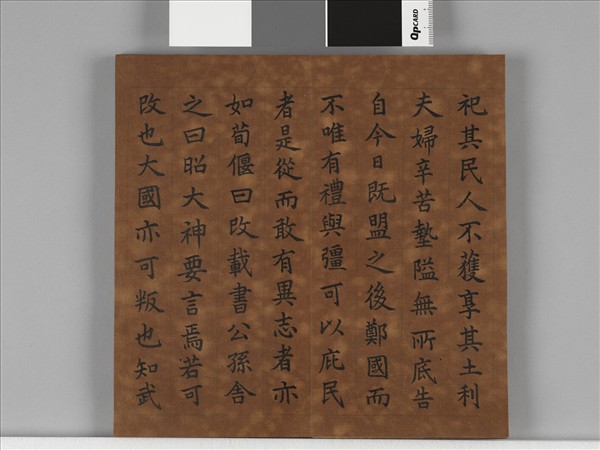 祀其民人不獲享其土利
夫婦辛苦墊隘無所底告
自今日既盟之後鄭國而
不唯有禮與彊可以庇民
者是從而敢有異志者亦
如荀偃曰改載書公孫舍
之曰昭大神要言焉若可
改也大國亦可叛也知武
QPCARD